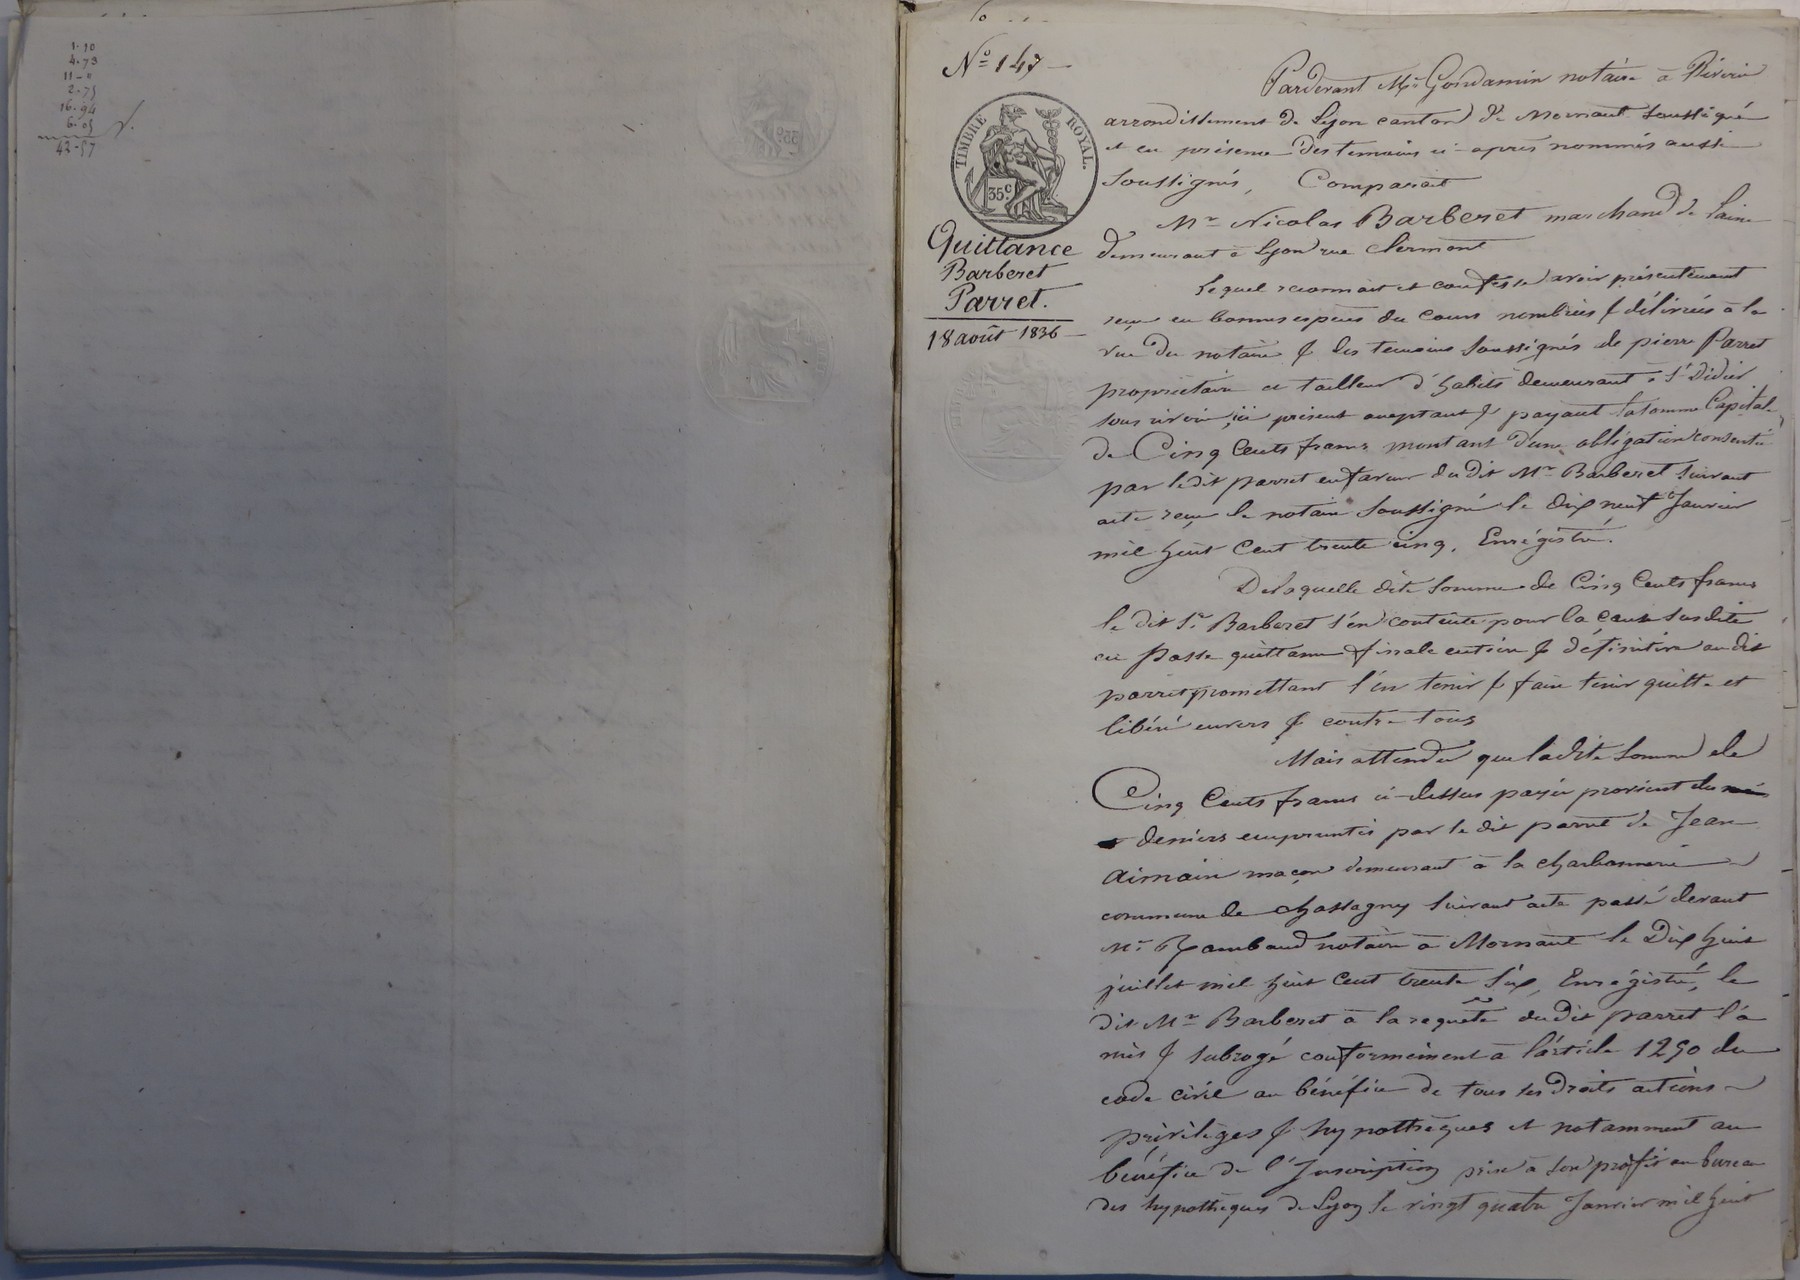 1.10
4.73
11-"
2.75
16.94
6.05
43-57
N° 147
TIMBRE ROYAL.
35.c
Quittance
Barberet
Parret.
18 août 1836
Pardevant Me Gondamin notaire à Riverie
arrondissement de Lyon canton de Mornant soussigné
et en présence des temoins ci-après nommés aussi
soussignés, Comparait
Mr Nicolas Barberet marchand de laine
demeurant à Lyon rue Clermont
Lequel reconnait et confesse avoir présentement
reçu en bonnes espèces du cours nombrées & délivrées à la
vue du notaire & des temoins soussignés de pierre Parret
propriétaire et tailleur d'habits demeurant à St Didier
sous riverie, ici présent acceptant & payant la somme Capitale
de Cinq Cents francs montant d'une obligation consentie
par ledit parret en faveur du dit Mr Barberet suivant
acte reçu le notaire soussigné le dix neuf Janvier
mil huit Cent trente cinq, Enrégistré.
De laquelle dite somme de Cinq Cents francs
le dit Sr Barberet s'en contente pour la cause susdite
en passe quittance finale entière & définitive au dit
parret promettant l'en tenir & faire tenir quitte et
libéré envers & contre tous
Mais attendu que ladite somme de
Cinq Cents francs ci-dessus payée provient des
deniers empruntés par le dit parret de Jean
Aimain maçon demeurant à la charbonnerie
commune de chassagny suivant acte passé devant
Me Rambaud notaire à Mornant le Dix huit
juillet mil huit Cent trente Six, Enrégistré, le
dit Mr Barberet à la requête du dit parret l'a
mis & subrogé conformément à l'article 1250 du
code civil au bénéfice de tous ses droits actions
privilèges & hypothèques et notamment au
bénéfice de l'Inscription prise à son profit au bureau
des hypothèques de Lyon le vingt quatre Janvier mil huit